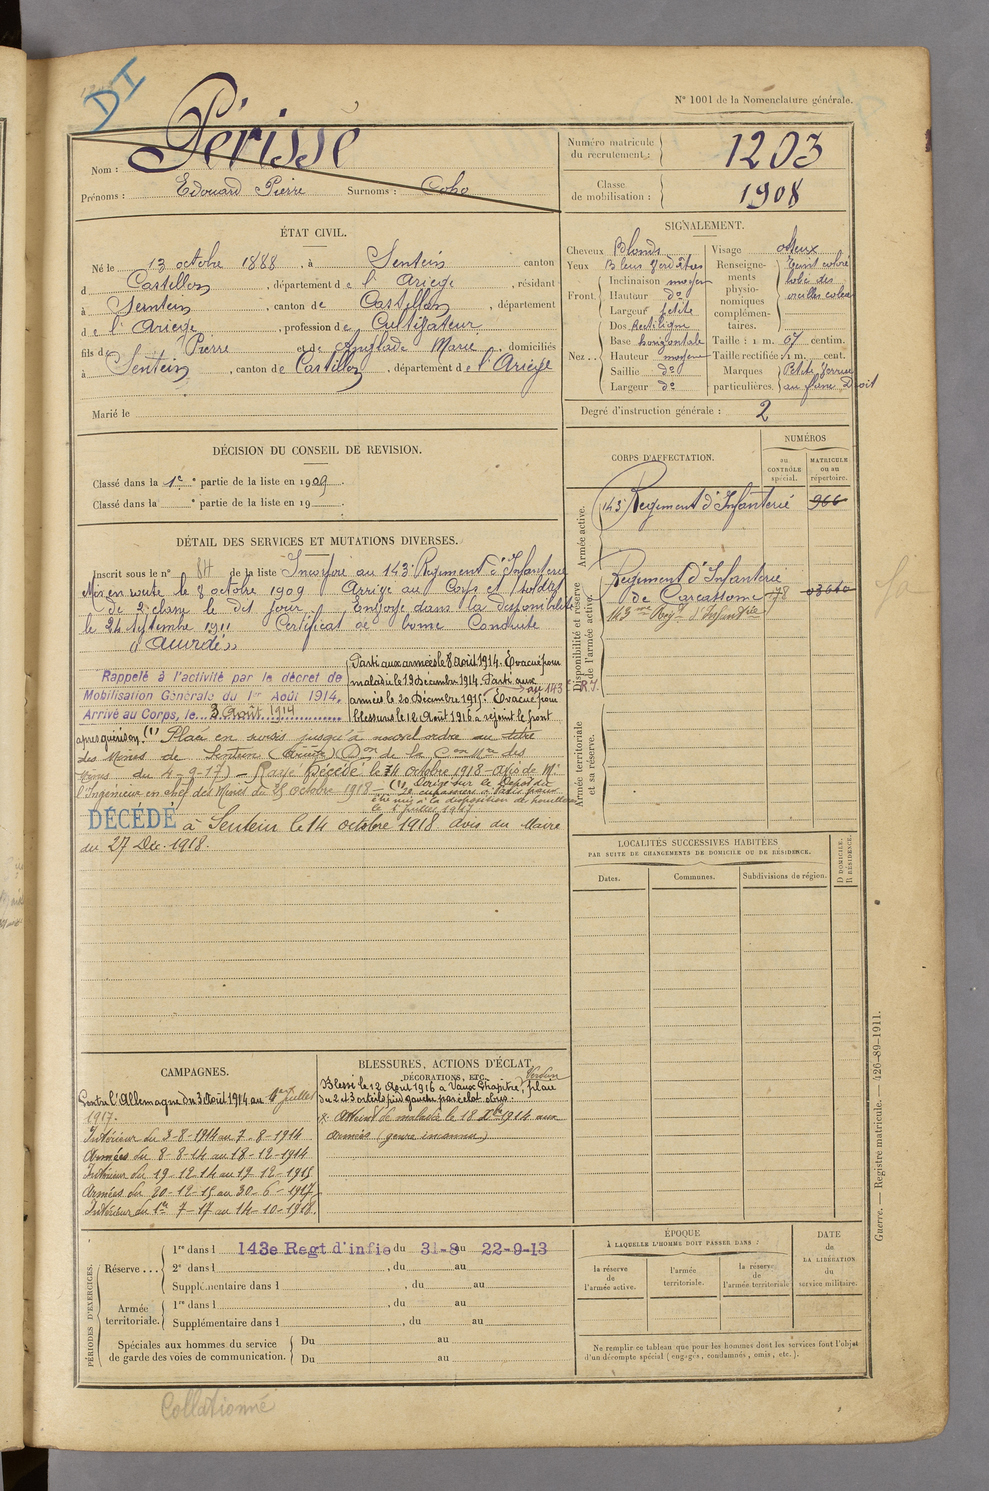 DI
N° 1001 de la Nomenclature générale.
Nom : Périssé
Prénoms : Edouard Pierre Surnoms : Coho
Numéro matricule du recrutement : 1203
Classe de mobilisation : 1908
ÉTAT CIVIL.
Né le 13 octobre 1888, à Sentein canton
d Castillon, département de l'Ariège, résidant
à Sentein, canton de Castillon, département
de l'Ariège, profession de Cultivateur
fils de Pierre et de Anglade Marie, domiciliés
à Sentein, canton de Castillon, département de l'Ariège
Marié le
SIGNALEMENT.
Cheveux Blonds
Yeux Bleus Verdâtres
Front Inclinaison moyen
Hauteur do
Largeur petite
Nez Dos Rectiligne
Base horizontale
Hauteur moyenne
Saillie do
Largeur do
Visage osseux
Renseignements physionomiques complémentaires. Teint coloré
lobe des
oreilles colorées
Taille : 1 m. 67 centim.
Taille rectifiée : 1 m. cent.
Marques particulières. Petite Verrue
au flanc Droit
Degré d'instruction générale : 2
DÉCISION DU CONSEIL DE REVISION.
Classé dans la 1e partie de la liste en 1909.
Classé dans la partie de la liste en 19
DÉTAIL DES SERVICES ET MUTATIONS DIVERSES.
Inscrit sous le n° 84 de la liste Incorporé au 143e Régiment d'Infanterie
Mis en route le 8 octobre 1909 Arrivé au Corps et soldat
de 2e classe le dit jour. Envoyé dans la disponibilité
le 24 septembre 1911 Certificat de bonne Conduite
"Accordé"
Rappelé à l'activité par le décret de
Mobilisation Générale du 1er Août 1914.
Arrivé au Corps, le 3 Août 1914
Parti aux armées le 8 août 1914. Évacué pour
maladie le 19 Décembre 1914. Parti aux
armées le 20 Décembre 1915. Évacué pour
au 143 R.I.
blessures le 12 Août 1916 a rejoint le front
après guérison. (1) Placé en sursis jusqu'à nouvel ordre au titre
des Mines de Sentein (Ariège) (Don de la Con Mre des
Mines du 4-9-17) – Rayé Décédé le 14 octobre 1918 – avis de Mr
l'Ingénieur en chef des Mines du 25 octobre 1918 – (1) Dirigé sur le Dépôt du
être mis à la disposition de
le 1 juillet 1917
DÉCÉDÉ à Sentein le 14 octobre 1918 avis du Maire
du 27 Déc. 1918.
CORPS D'AFFECTATION.
NUMÉROS
au CONTRÔLE spécial.
MATRICULE ou au répertoire.
Armée active.
143e Régiment d'Infanterie 966
Disponibilité et réserve de l'armée active.
Régiment d'Infanterie
de Carcassonne 178
143me Régt d'Infanterie
Armée territoriale et sa réserve.
LOCALITÉS SUCCESSIVES HABITÉES
PAR SUITE DE CHANGEMENTS DE DOMICILE OU DE RÉSIDENCE.
Dates.
Communes.
Subdivisions de région.
D DOMICILE. R RÉSIDENCE.
CAMPAGNES.
Contre l'Allemagne du 3 Août 1914 au 1er Juillet
1917.
Intérieur du 3-8-1914 au 7-8-1914
Armées du 8-8-14 au 18-12-1914
Intérieur du 19-12-14 au 19-12-1915
Armées du 20-12-15 au 30-6-1917
Intérieur du 1er 7-17 au 14-10-1918.
BLESSURES, ACTIONS D'ÉCLAT,
DÉCORATIONS, ETC.
Verdun
Blessé le 12 Août 1916 à Vaux Chapitre, plaie
du 2 et 3 orteils pied gauche par éclat obus.
Atteint de maladie le 18 Xbre 1914 aux
armées (genre inconnu)
PÉRIODES D'EXERCICES.
Réserve... 1re dans l 143e Regt d'infie du 31-8 au 22-9-13
2e dans l , du au
Supplémentaire dans l , du au
Armée territoriale. 1re dans l , du au
Supplémentaire dans l , du au
Spéciales aux hommes du service de garde des voies de communication. Du au
Du au
ÉPOQUE
À LAQUELLE L'HOMME DOIT PASSER DANS :
la réserve de l'armée active.
l'armée territoriale.
la réserve de l'armée territoriale
DATE de LA LIBÉRATION du service militaire.
Ne remplir ce tableau que pour les hommes dont les services font l'objet
d'un décompte spécial (engagés, condamnés, omis, etc.).
Guerre. — Registre matricule. — 426-89-1911.
Collationné